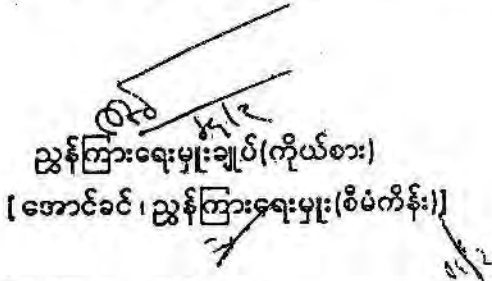 ညွှန်ကြားရေးမှူးချုပ်(ကိုယ်စား)
[အောင်ခင်၊ညွှန်ကြားရေးမှူး(စီမံကိန်း)]